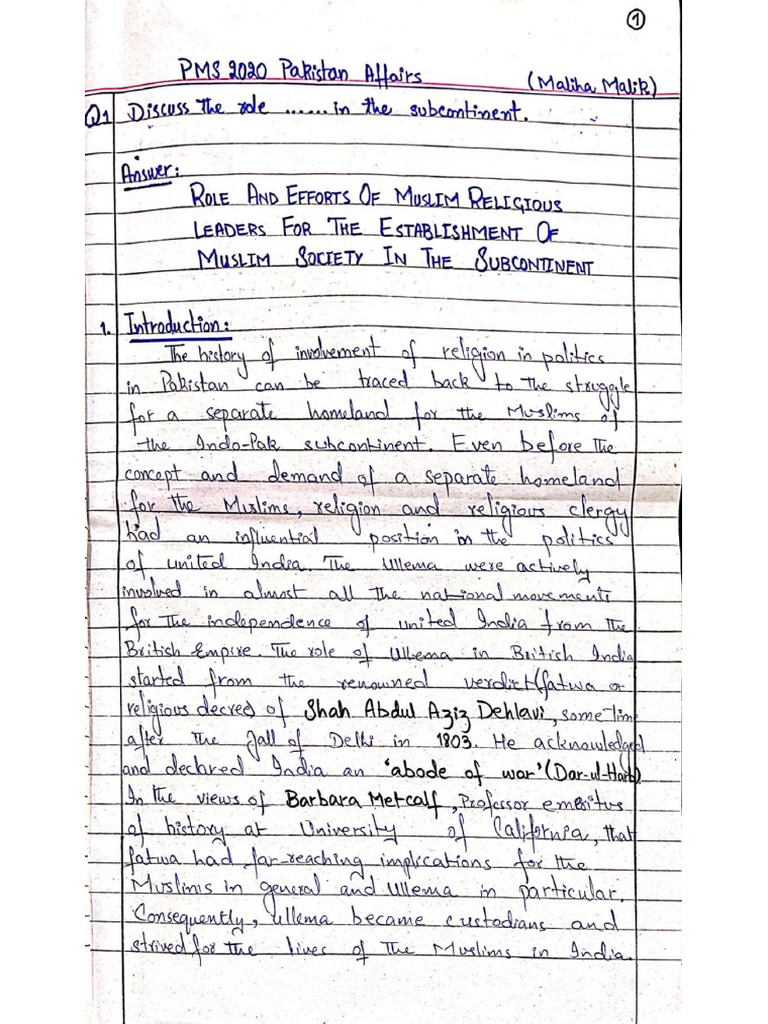 1
PMS 2020 Pakistan Affairs (Maliha Malik)
Q1 Discuss the role ...... in the subcontinent.
Answer:
ROLE AND EFFORTS OF MUSLIM RELIGIOUS
LEADERS FOR THE ESTABLISHMENT OF
MUSLIM SOCIETY IN THE SUBCONTINENT
1. Introduction:
The history of involvement of religion in politics
in Pakistan can be traced back to the struggle
for a separate homeland for the Muslims of
the Indo-Pak subcontinent. Even before the
concept and demand of a separate homeland
for the Muslims, religion and religious clergy
had an influential position in the politics
of united India. The Ullema were actively
involved in almost all the national movements
for the independence of united India from the
British Empire. The role of Ullema in British India
started from the renowned verdict(fatwa or
religious decree) of Shah Abdul Aziz Dehlavi, some time
after the fall of Delhi in 1803. He acknowledged
and declared India an 'abode of war' (Dar-ul-Harb).
In the views of Barbara Metcalf, Professor emeritus
of history at University of California, that
fatwa had far-reaching implications for the
Muslims in general and Ullema in particular.
Consequently, ullema became custodians and
strived for the lives of the Muslims in India.